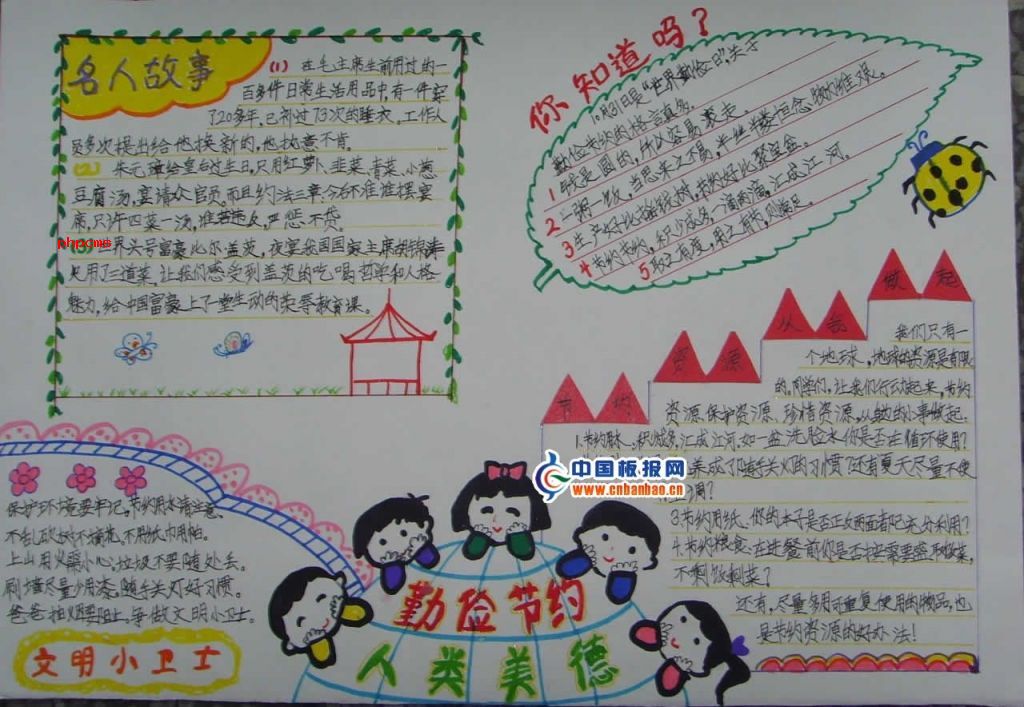 名人故事
(1) 在毛主席生前用过的一
百多件日常生活用品中有一件穿
了20多年,已补过73次的睡衣,工作人
员多次提出给他换新的,他执意不肯。
(2) 朱元璋给皇后过生日,只用红萝卜、韭菜,青菜、小葱
豆腐汤,宴请众官员,而且约法三章:今后不准谁摆宴
席,只许四菜一汤,谁若违反,严惩不贷。
phpcms
世界头号富豪比尔盖茨,夜宴我国国家主席胡锦涛
只用了三道菜,让我们感受到盖茨的吃喝哲学和人格
魅力,给中国富豪上了一堂生动的荣辱教育课。
你知道吗?
10月31日是“世界勤俭日”,关于
勤俭节约的格言真多。
1 钱是圆的,所以容易
2 一粥一饭,当思来之不易,半丝半缕恒念物力维艰。
3 生产好比摇钱树,节约好比聚宝盆。
4 节约节约,积少成多,一滴两滴,汇成江河。
5 取之有度,用之有节,则常足。
节约资源从我做起
我们只有一
个地球,地球的资源是有限
的,同学们,让我们行动起来,节约
资源、保护资源、珍惜资源,从身边的小事做起:
1.节约用水、积少成多,汇成江河,如一盆洗脸水你是否在循环使用?
养成了随手关灯的习惯?还有夏天尽量不使
空调?
3.节约用纸、你的本子是否正反两面都用来充分利用?
4.节约粮食:在进餐前你是否按需要盛取饭菜,
不剩饭剩菜?
还有,尽量多用可重复使用的物品,也
是节约资源的好办法!
中国板报网
www.cnbanbao.cn
保护环境要牢记,节约用水请注意。
不乱砍树不摘花,不用纸巾用帕。
上山用火需小心,垃圾不要随处丢。
刷墙尽量少用漆,随手关灯好习惯。
爸爸抽烟要阻止,争做文明小卫士。
文明小卫士
勤俭节约
人类美德